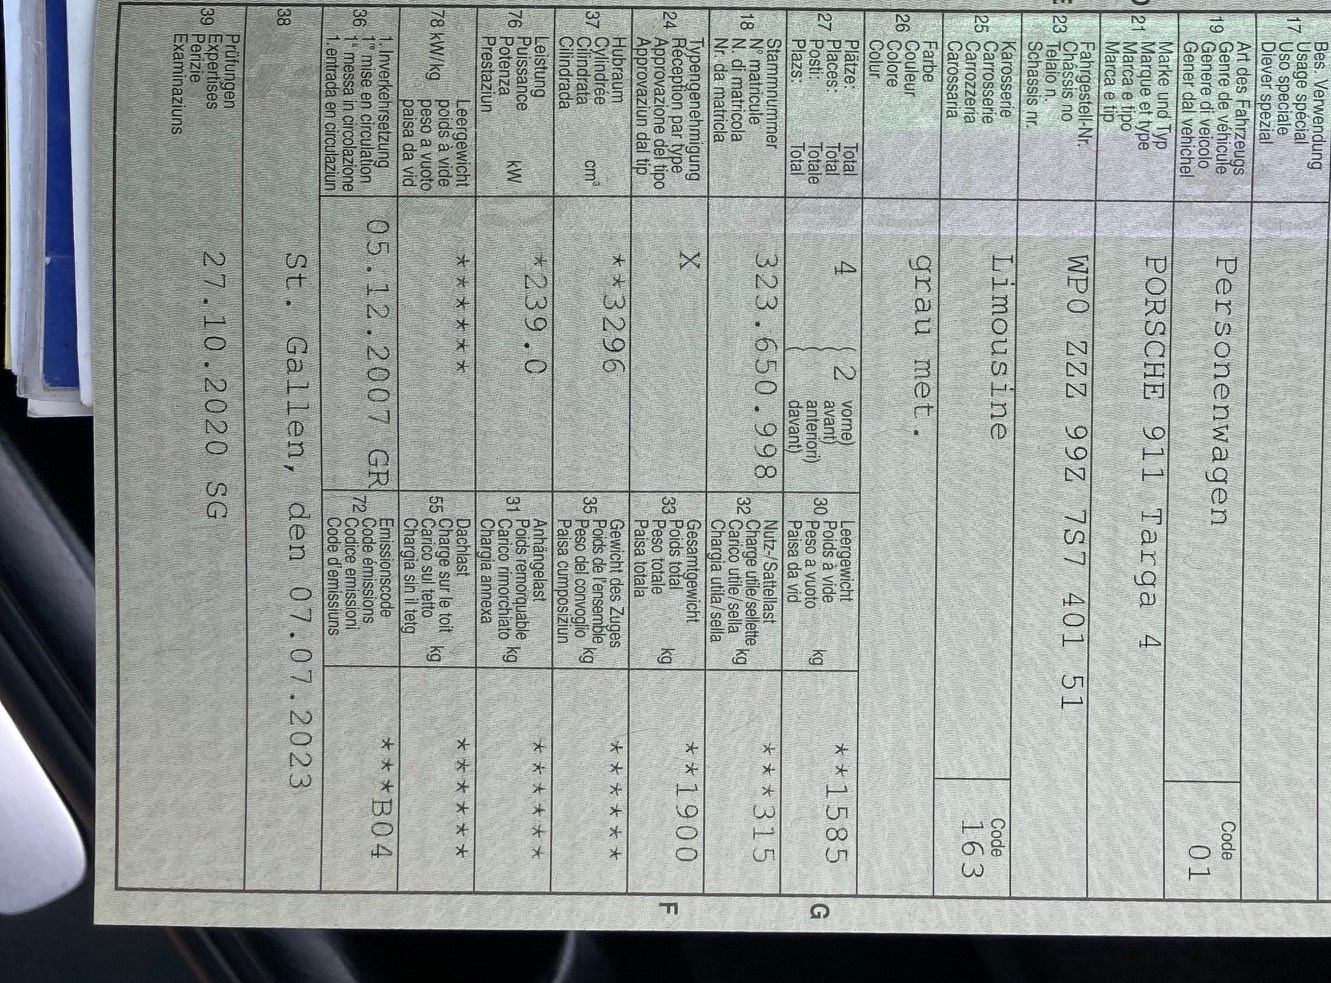 Bes. Verwendung
17 Usage spécial
Uso speciale
Diever spezial
Art des Fahrzeugs
19 Genre de véhicule
Genere di veicolo
Gener dal vehichel
Personenwagen
Code
01
Marke und Typ
21 Marque et type
Marca e tipo
Marca e tip
PORSCHE 911 Targa 4
Fahrgestell-Nr.
23 Châssis no
Telaio n.
Schassis nr.
WP0 ZZZ 99Z 7S7 401 51
Karosserie
25 Carrosserie
Carrozzeria
Carossaria
Limousine
Code
163
Farbe
26 Couleur
Colore
Colur
grau met.
Plätze: Total
27 Places: Total
Posti: Totale
Plazs: Total
4 { 2 vorne)
avant)
anteriori)
davant)
Leergewicht
30 Poids à vide
Peso a vuoto kg
Paisa da vid
**1585
G
Stammnummer
18 N° matricule
N. di matricola
Nr. da matricla
323.650.998
Nutz-/Sattellast
32 Charge utile/sellette
Carico utile/sella kg
Chargia utila/sella
***315
Typengenehmigung
24 Réception par type
Approvazione del tipo
Approvaziun dal tip
X
Gesamtgewicht
33 Poids total
Peso totale kg
Paisa totala
**1900
F
Hubraum
37 Cylindrée
Cilindrata cm³
Cilindrada
**3296
Gewicht des Zuges
35 Poids de l'ensemble
Peso del convoglio kg
Paisa cumposiziun
******
Leistung
76 Puissance
Potenza kW
Prestaziun
*239.0
Anhängelast
31 Poids remorquable
Carico rimorchiato kg
Chargia annexa
******
Leergewicht
78 kW/kg poids à vide
peso a vuoto
paisa da vid
******
Dachlast
55 Charge sur le toit
Carico sul tetto kg
Chargia sin il tetg
******
1. Inverkehrsetzung
36 1re mise en circulation
1a messa in circolazione
1. entrada en circulaziun
05.12.2007 GR
Emissionscode
72 Code émissions
Codice emissioni
Code d'emissiuns
***B04
38
St. Gallen, den 07.07.2023
Prüfungen
39 Expertises
Perizie
Examinaziuns
27.10.2020 SG